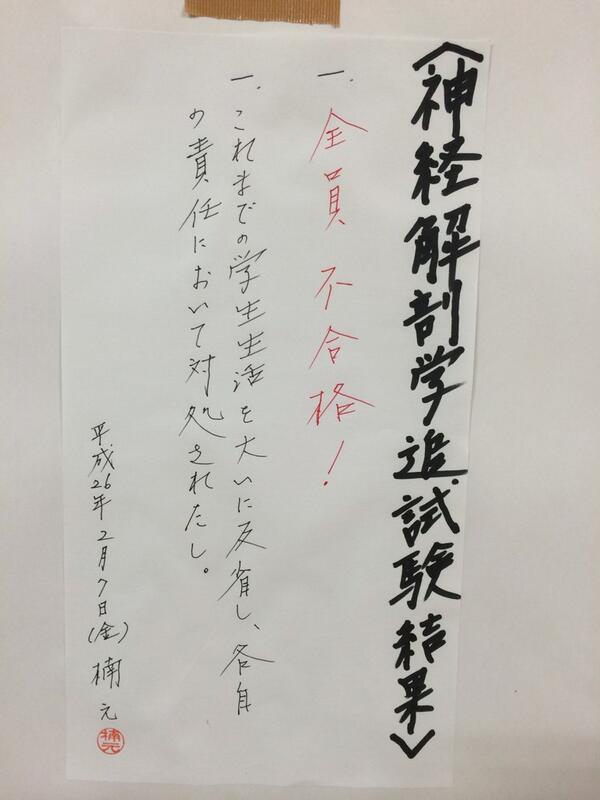 〈神経解剖学追試験結果〉
一. 全員 不合格!
一. これまでの学生生活を大いに反省し、各自
の責任において対処されたし。
平成26年2月7日(金) 楠元
楠元